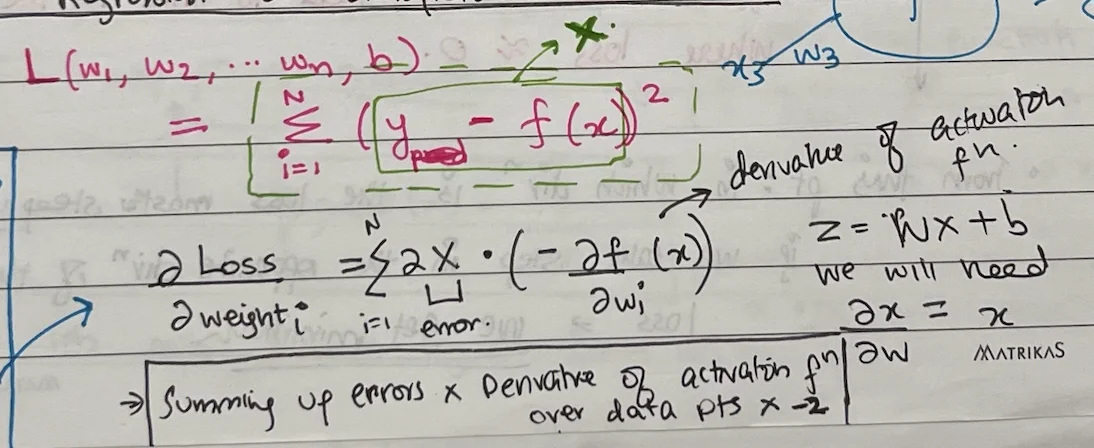 L(w₁, w₂, ... wn, b)
x.
x₃ w₃
= N Σ i=1 (y - f(x))²
derivative of activation fn.
∂ Loss / ∂ weight i = N Σ i=1 2X · (- ∂f(x) / ∂wi)
error.
z = Wx + b
we will need
∂x / ∂w = x
MATRIKAS
⇒ Summing up errors x Derivative of activation fn
over data pts x -2